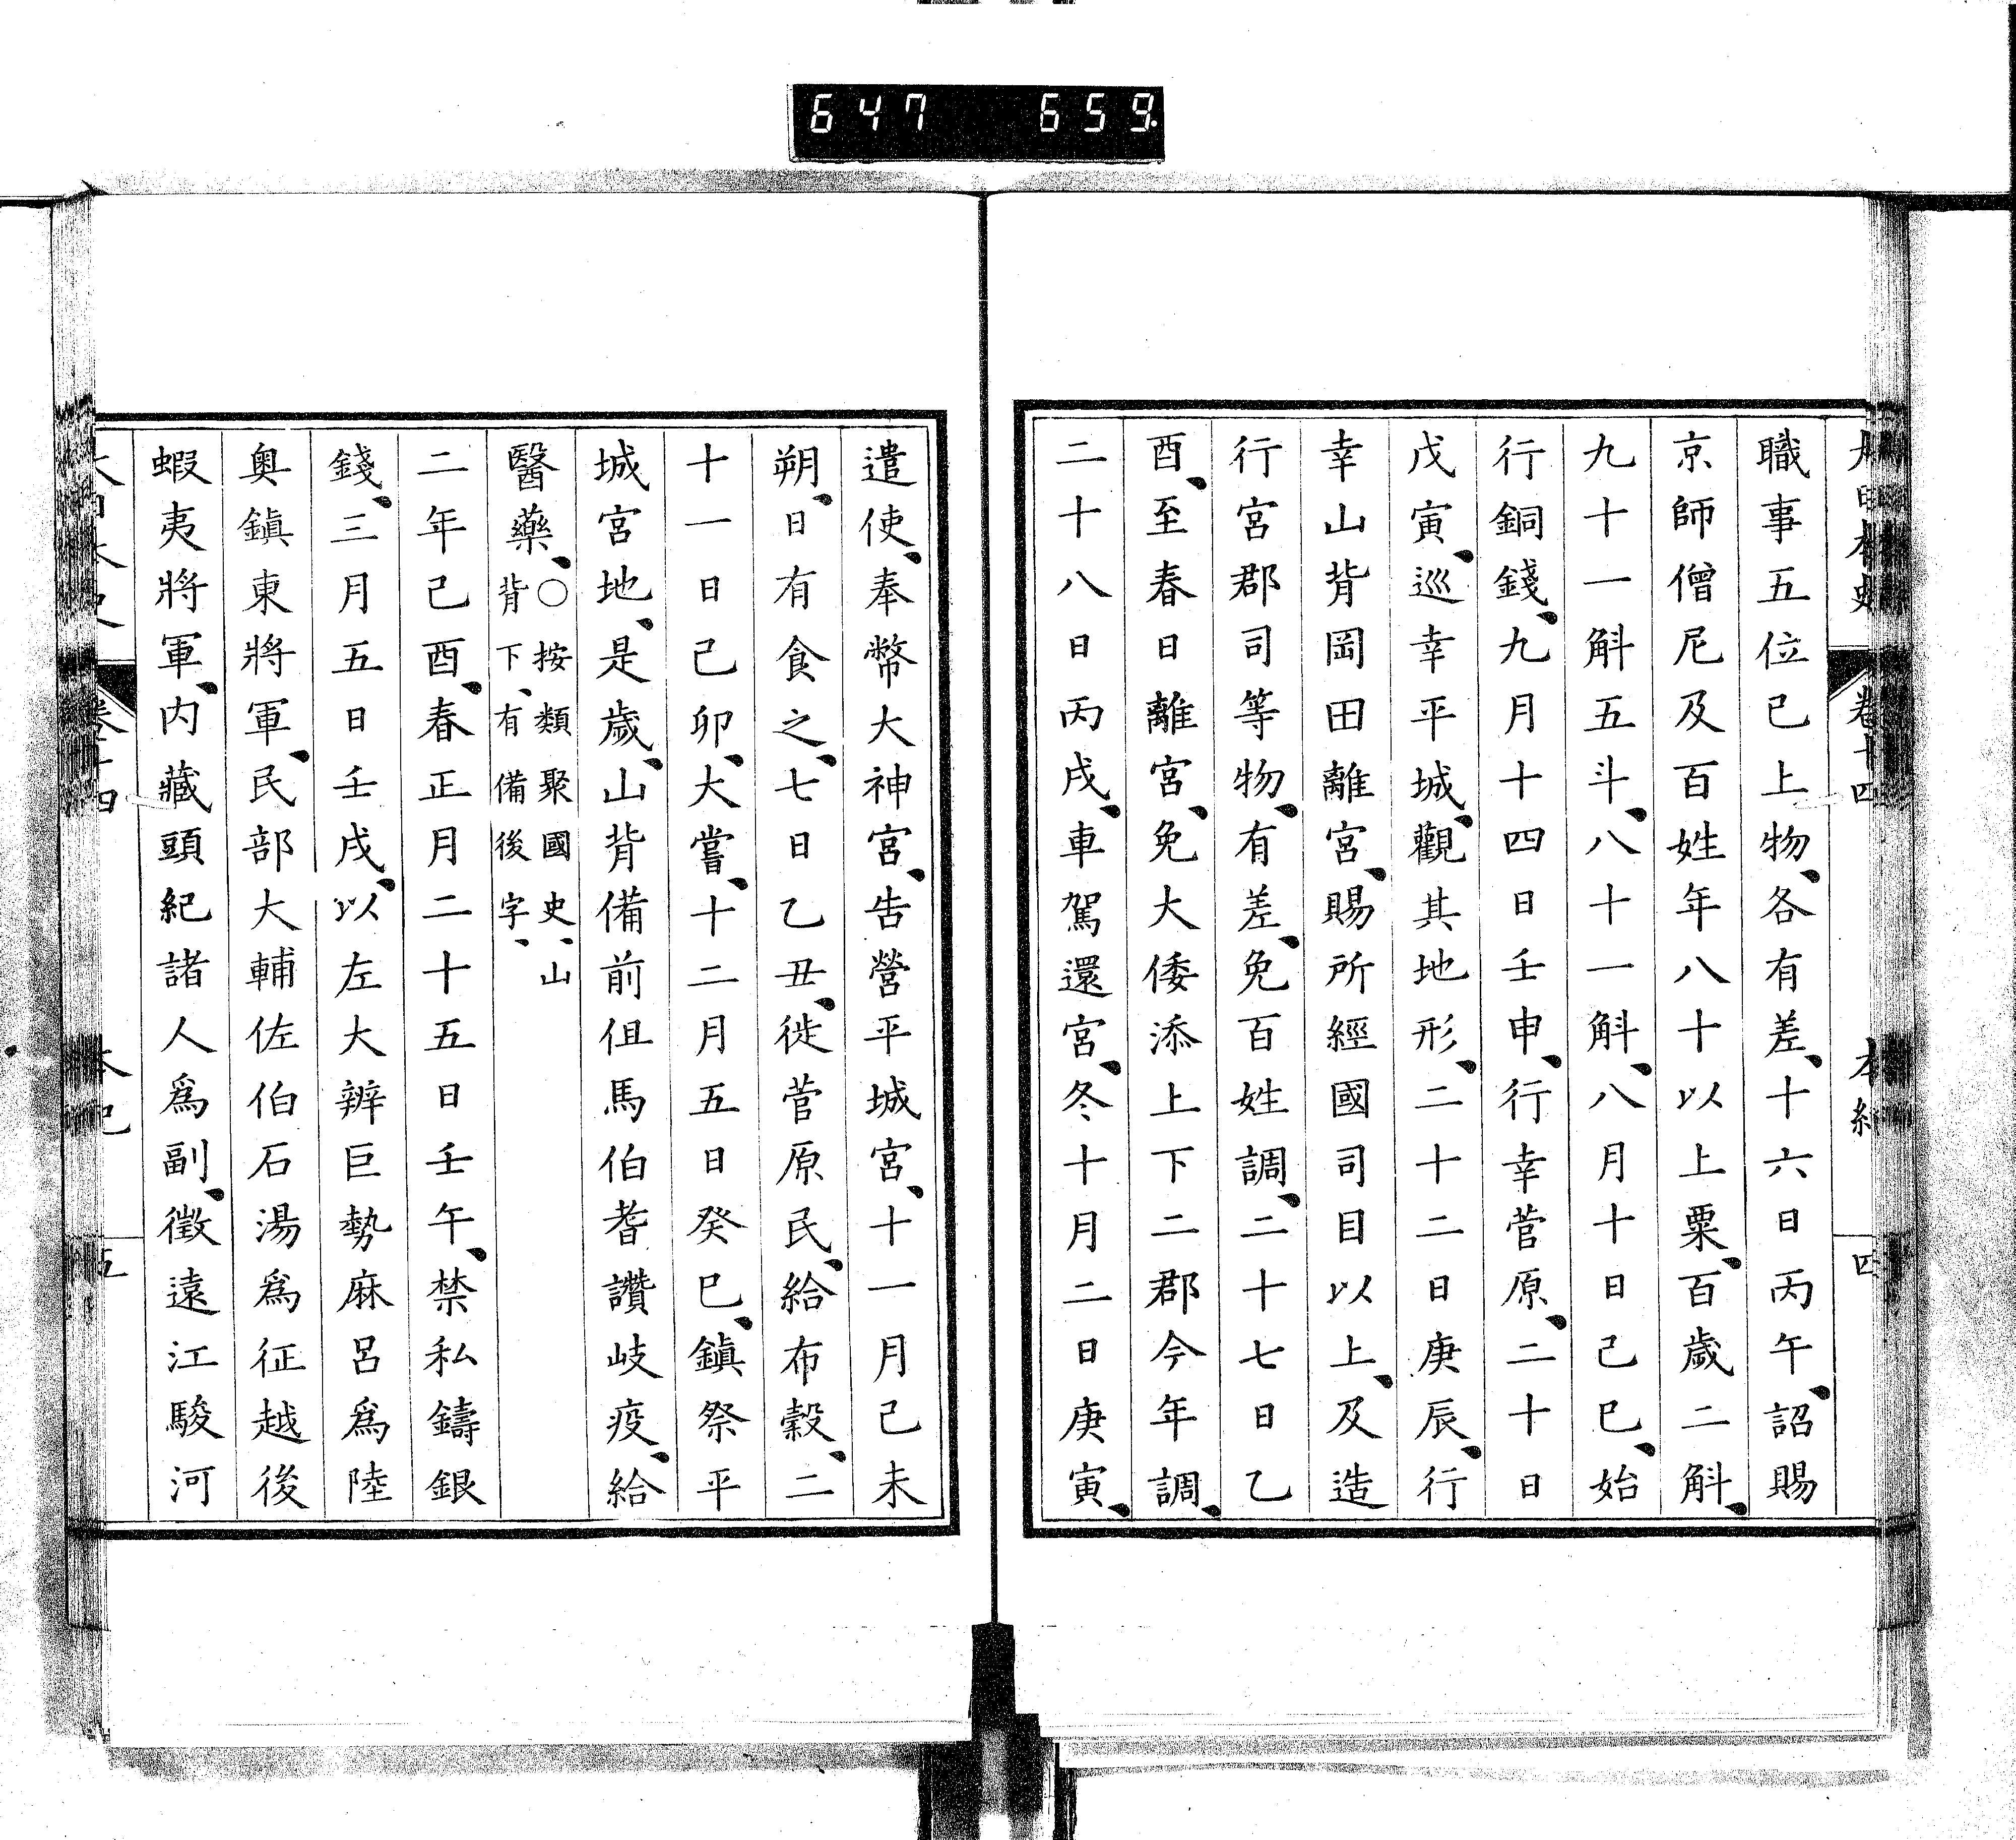 647 659.
職事五位已上物、各有差、十六日丙午、詔賜
京師僧尼及百姓年八十以上粟、百歲二斛、
九十一斛五斗、八十一斛、八月十日己巳、始
行銅錢、九月十四日壬申、行幸菅原、二十日
戊寅、巡幸平城、觀其地形、二十二日庚辰、行
幸山背岡田離宮、賜所經國司目以上、及造
行宮郡司等物、有差、免百姓調、二十七日乙
酉、至春日離宮、免大倭添上下二郡今年調、
二十八日丙戌、車駕還宮、冬十月二日庚寅、
遣使、奉幣大神宮、告營平城宮、十一月己未
朔、日有食之、七日乙丑、徙菅原民、給布穀、二
十一日己卯、大嘗、十二月五日癸巳、鎮祭平
城宮地、是歲、山背備前伹馬伯耆讚岐疫、給
醫藥、○按類聚國史、山背下、有備後字、
二年己酉、春正月二十五日壬午、禁私鑄銀
錢、三月五日壬戌、以左大辨巨勢麻呂爲陸
奧鎮東將軍、民部大輔佐伯石湯爲征越後
蝦夷將軍、内藏頭紀諸人爲副、徵遠江駿河